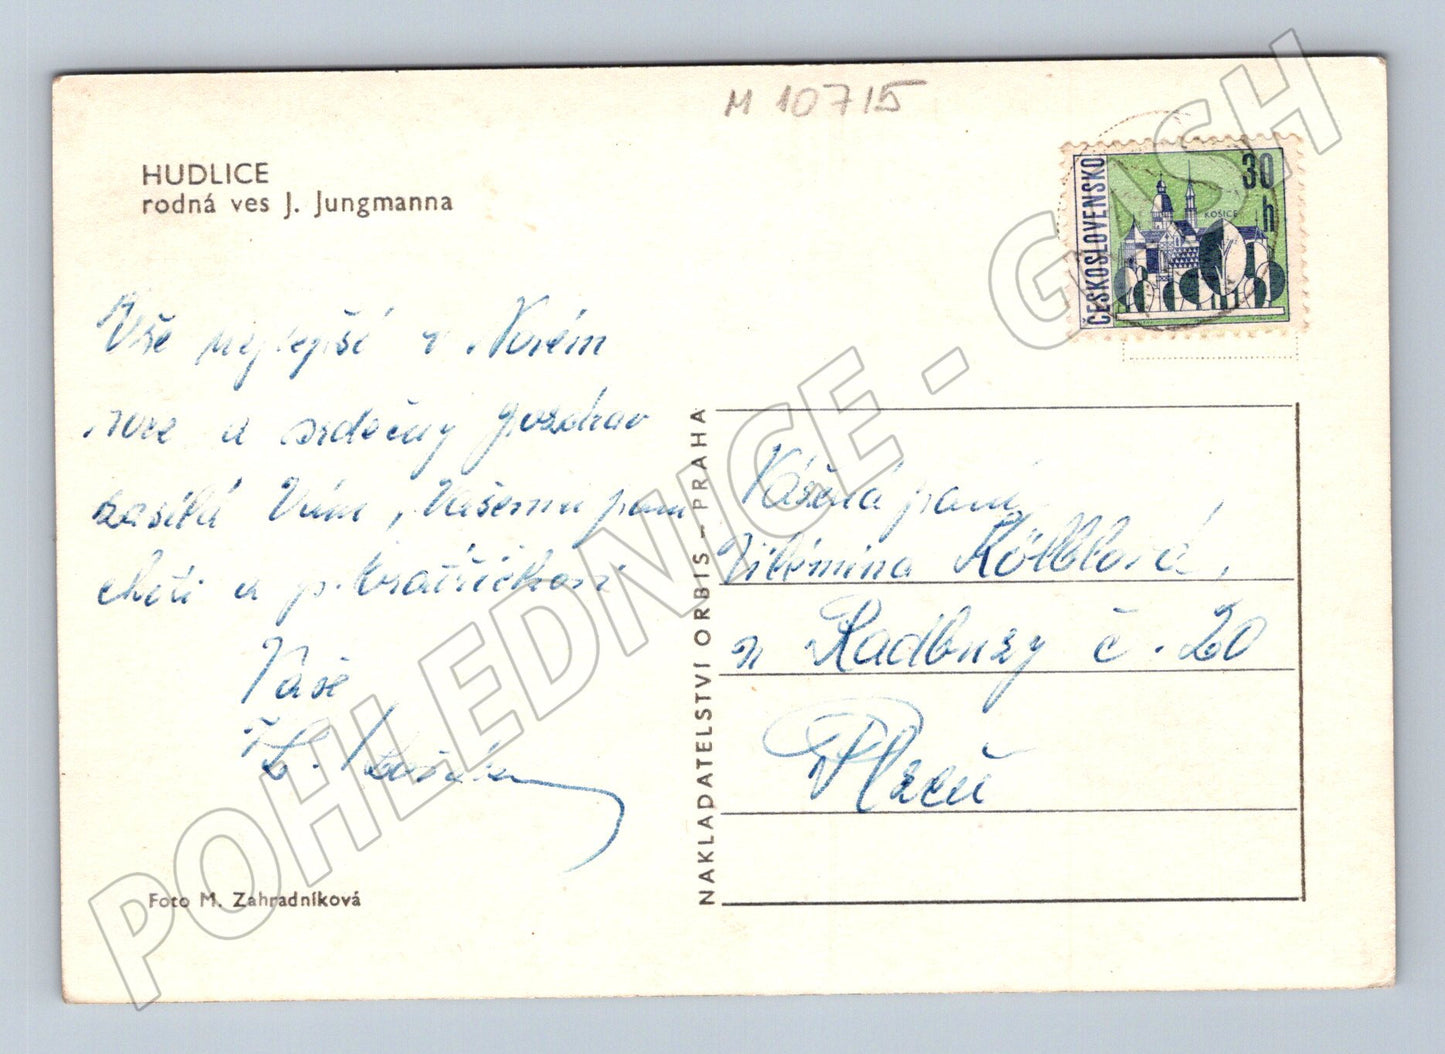 M 10715
HUDLICE
rodná ves J. Jungmanna
ČESKOSLOVENSKO
30
h
KOŠICE
Vše nejlepší v Novém
roce a srdečný pozdrav
zasílá Vám, Vašemu panu
choti a p.
Vaše
Foto M. Zahradníková
NAKLADATELSTVÍ ORBIS - PRAHA
Vážená paní
Vilémina Kölblová,
n Radbuzy č. 20
Plzeň
POHLEDNICE - GASH